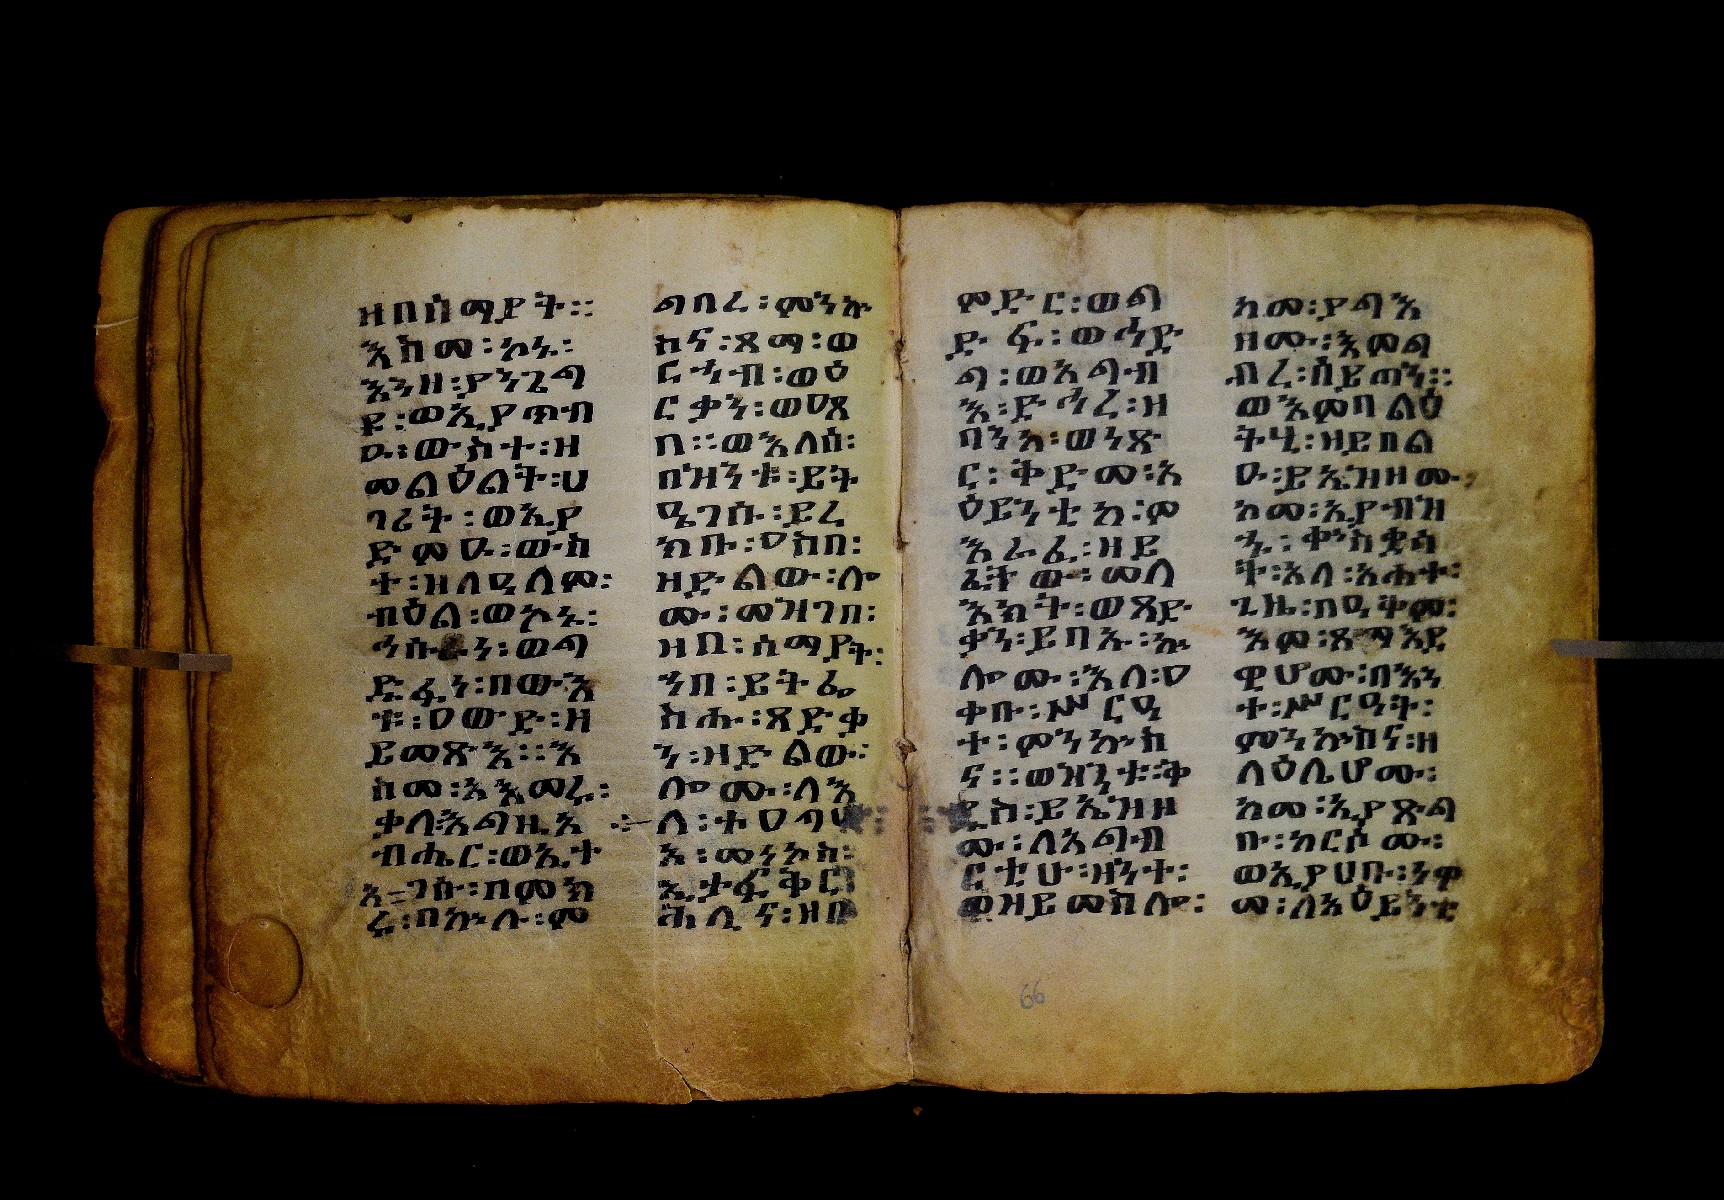 ዘበሰማያት።
እስመ፡ኮኑ፡
እንዘ፡ያንጌግ
ዩ፡ወኢያጥብ
ዑ፡ውስተ፡ዘ
መልዕልት፡ሀ
ገሪት፡ወኢያ
ድምዑ፡ውስ
ተ፡ዘለዓለም፡
ብዕል፡ወኮኑ፡
ንሱ ን፡ወግ
ዱፋነ፡በውእ
ቱ፡ዐውድ፡ዘ
ይመጽእ፡፡እ
ስመ፡አእመሩ፡
ቃለ፡እግዚአ
ብሔር፡ወኢተ
አገሱ፡በመከ
ረ፡በኵሉ፡ም
ግበረ፡ምንኵ
ስና፡ጾማ፡ወ
ርኅብ፡ወዕ
ርቃን፡ወዐጸ
በ፡፡ወእለሰ፡
በዝንቱ፡ይት
ዔገሱ፡ይረ
ክቡ፡ዐስበ፡
ዘድልው፡ሎ
ሙ፡መዝገበ፡
ዘበ፡ሰማያት፡
ኀበ፡ይትፌ
ስሑ፡ጻድቃ
ን፡ዘድልው፡
ሎሙ፡ለእ
ለ፡ተዐገሡ
አ፡መነኮስ፡
ኢታፍቅር፡
ሕሊና፡ዘበ
ምድር፡ወግ
ድፋ፡ወኅድ
ግ፡ወአግብ
እ፡ድኅረ፡ዘ
ባንከ፡ወነጽ
ር፡ቅድመ፡አ
ዕይንቲከ፡ም
እራፊ፡ዘይ
ፌትው፡መለ
እክት፡ወጻድ
ቃን፡ይባኡ፡ኀ
ሎሙ፡እለ፡ዐ
ቀቡ፡ሥርዓ
ተ፡ምንኵስ
ና፡፡ወዝንቱ፡ቅ
ዱስ፡ይኤዝዘ
ሙ፡ለአግብ
ርቲሁ፡ዘንተ፡
ወዘይመስሎ፡
ከመ፡ያግእ
ዘሙ፡እምግ
ብረ፡ሰይጣን፡፡
ወእምባልዕ
ትሂ፡ዘይበል
ዑ፡ይኤዝዘሙ፡
ከመ፡ኢያብዝ
ኁ፡ቀኅስቋሳ
ት፡አለ፡አሐተ፡
ጊዜ፡በዓቅም፡
እም፡ጾማእደ
ዊሆሙ፡በእን
ተ፡ሥርዓት፡
ምንኵስና፡ዘ
ለዕሌሆሙ፡
ከመ፡ኢያጽግ
ቡ፡ከርሶሙ፡
ወኢያሀቡ፡ነዋ
መ፡ለአዕይንቲ
66